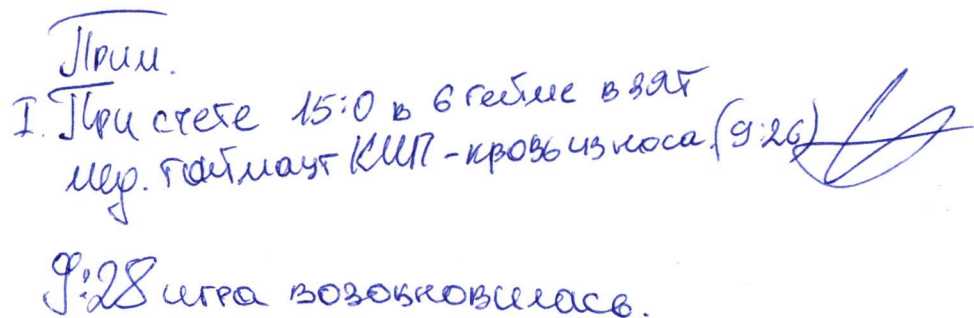 Прим.
I. При счете 15:0 в 6 гейме взят
мед. таймаут КИП - кровь из носа. (9:26)
9:28 игра возобновилась.